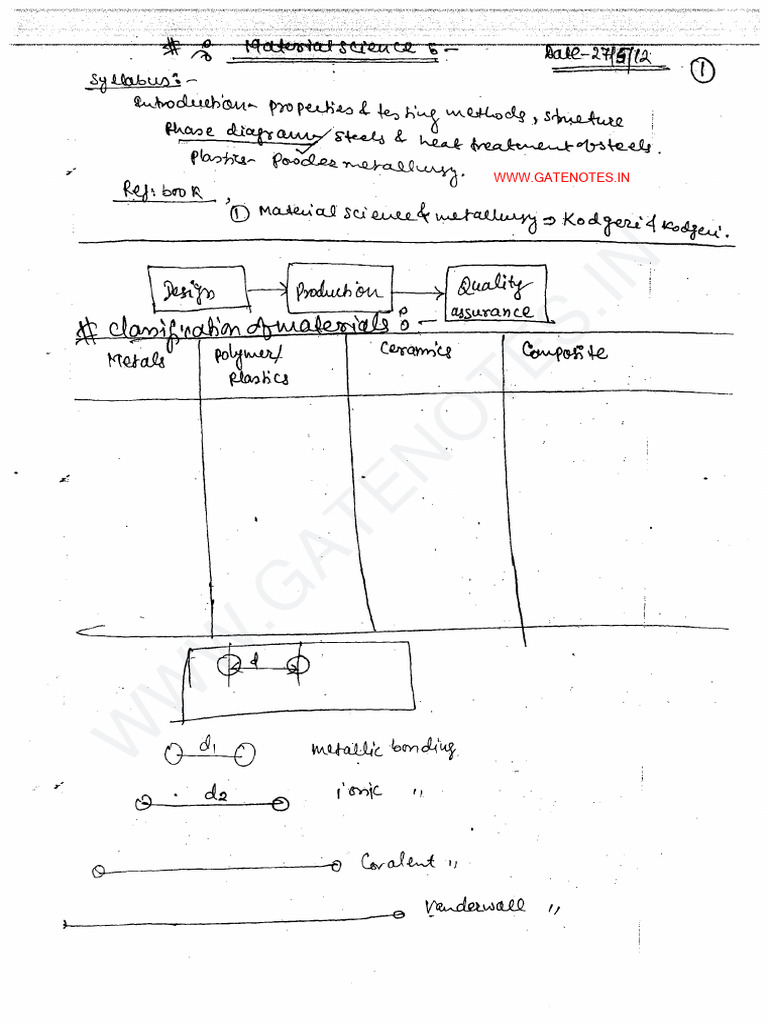 # : Material science :- Date - 27/5/12 1
Syllabus :-
Introduction - properties & testing methods, structure
Phase diagrams / steels & heat treatment of steels.
Plastics - Powder metallurgy.
WWW.GATENOTES.IN
Ref: book,
① Material science & metallurgy ⇒ Kodgeri & Kodgeri.
Design → Production → Quality assurance
# Classification of materials :-
Metals Polymer/ Plastics Ceramics Composite
d
d1 metallic bonding
d2 ionic "
Covalent "
Vanderwall "
WWW.GATENOTES.IN